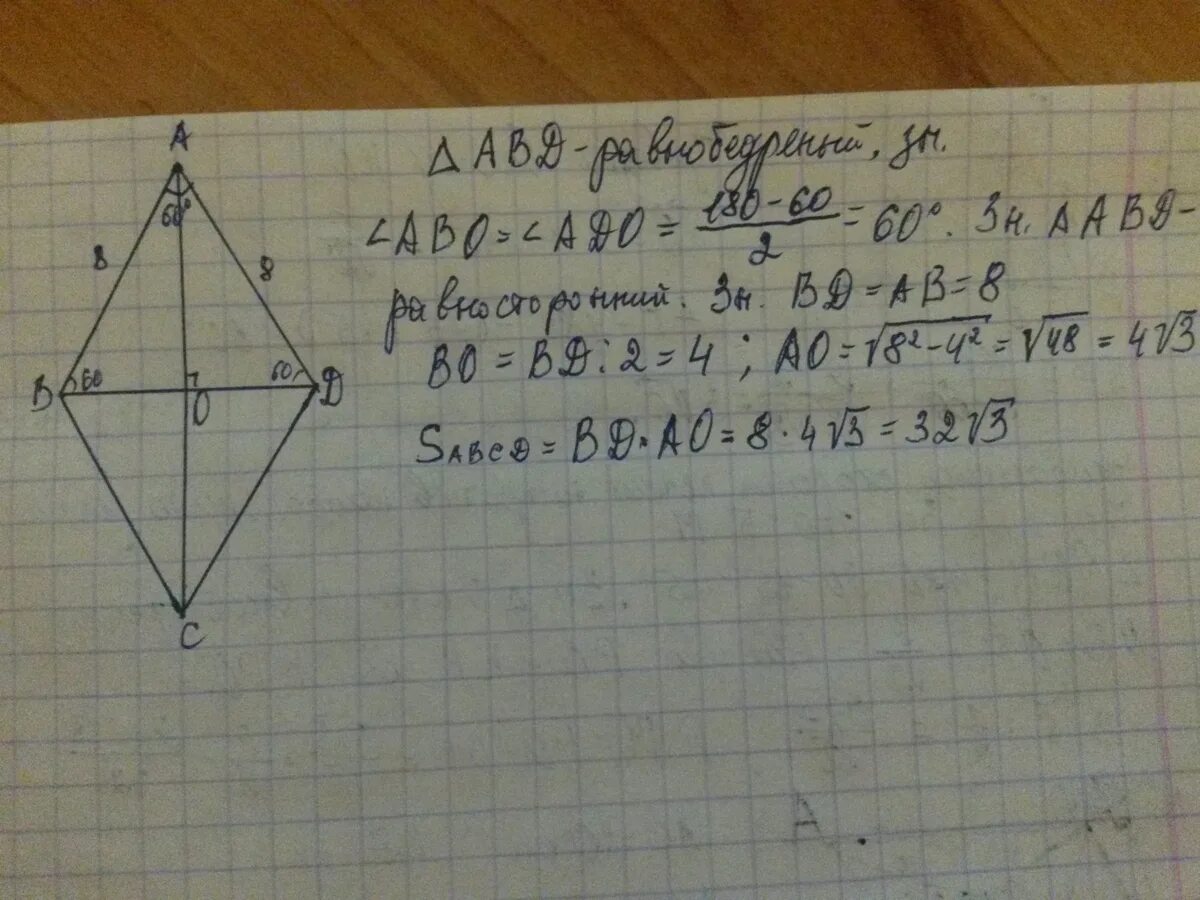 A
60°
8
8
B
60
60
D
O
C
△ABD-равнобедреный, зн.
∠ABO=∠ADO=(180-60)/2=60°. Зн. △ABD-
равносторонний. Зн. BD=AB=8
BO=BD:2=4; AO=√(8²-4²)=√48=4√3
S_ABCD=BD·AO=8·4√3=32√3
A